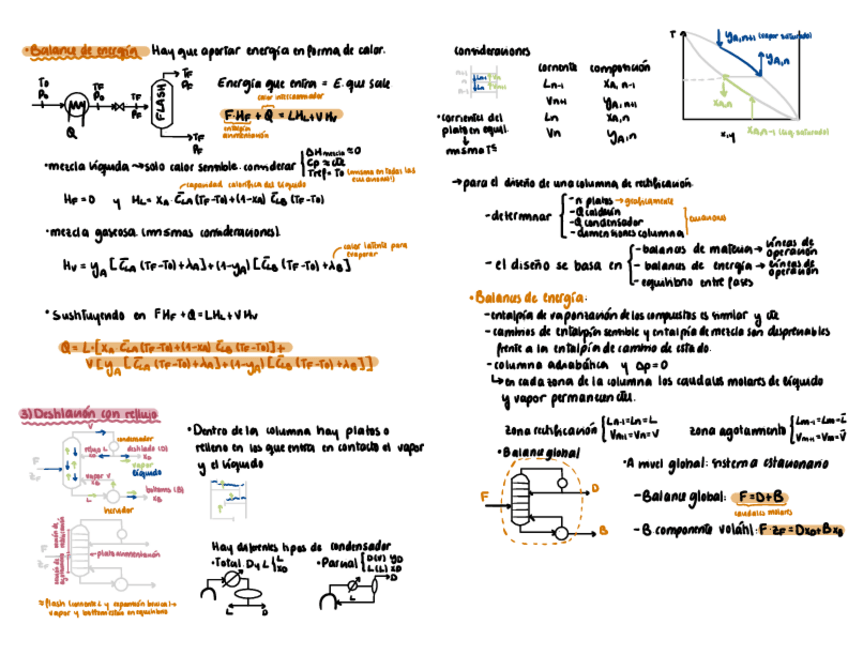 • Balance de energía Hay que aportar energía en forma de calor.
To
Po
TF
Po
TF
PF
FLASH
TF
PF
TF
PF
Q
Energía que entra = E. que sale
calor intercambiador
F·HF + Q = LHL + VHV
entalpía alimentación
• mezcla líquida → solo calor sensible. considerar { ΔHmezcla ≈ 0
Cp ≈ cte
Tref = To (misma en todas las ecuaciones)
capacidad calorífica del líquido
HF = 0 y HL = XA · C̄LA (TF-To) + (1-XA) C̄LB (TF-To)
• mezcla gaseosa (mismas consideraciones).
calor latente para evaporar
HV = yA [C̄LA (TF-To) + λA] + (1-yA) [C̄LB (TF-To) + λB]
• Sustituyendo en FHF + Q = LHL + VHV
Q = L·[XA C̄LA (TF-To) + (1-XA) C̄LB (TF-To)] +
V[yA [C̄LA (TF-To) + λA] + (1-yA) [C̄LB (TF-To) + λB]]
3) Destilación con reflujo
V
condensador
reflujo L
XD
destilado (D)
XD
vapor
líquido
vapor V
bottoms (B)
XB
L
hervidor
• Dentro de la columna hay platos o
relleno en los que entra en contacto el vapor
y el líquido
plato alimentación
Hay diferentes tipos de condensador
• Total. D y L { L
XD
• Parcial { D(V) yD
L(L) XD
L
D
D
L
vapor y bottom están en equilibrio
consideraciones
corriente composición
Ln-1 XA, n-1
Vn+1 yA, n+1
Ln XA, n
Vn yA, n
• corrientes del
plato en equil.
↓
misma Tª
T
yA, n+1 (vapor saturado)
yA, n
XA, n
XA, n-1 (líq. saturado)
x,y
→ para el diseño de una columna de rectificación.
- determinar { - n platos → gráficamente
- Q calderín
- Q condensador
- dimensiones columna
} ecuaciones
- el diseño se basa en { - balances de materia → líneas de operación
- balances de energía → líneas de operación
- equilibrio entre fases
• Balances de energía:
- entalpía de vaporización de los compuestos es similar y cte
- cambios de entalpía sensible y entalpía de mezcla son despreciables
frente a la entalpía de cambio de estado.
- columna adiabática y Δp=0
↳ en cada zona de la columna los caudales molares de líquido
y vapor permanecen cte.
zona rectificación { Ln-1 = Ln = L
Vn+1 = Vn = V
zona agotamiento { Lm-1 = Lm = L̄
Vm+1 = Vm = V̄
• Balance global
F
D
B
• A nivel global: sistema estacionario
- Balance global: F = D + B
caudales molares
- B. componente volátil: F·zF = DxD + BxB